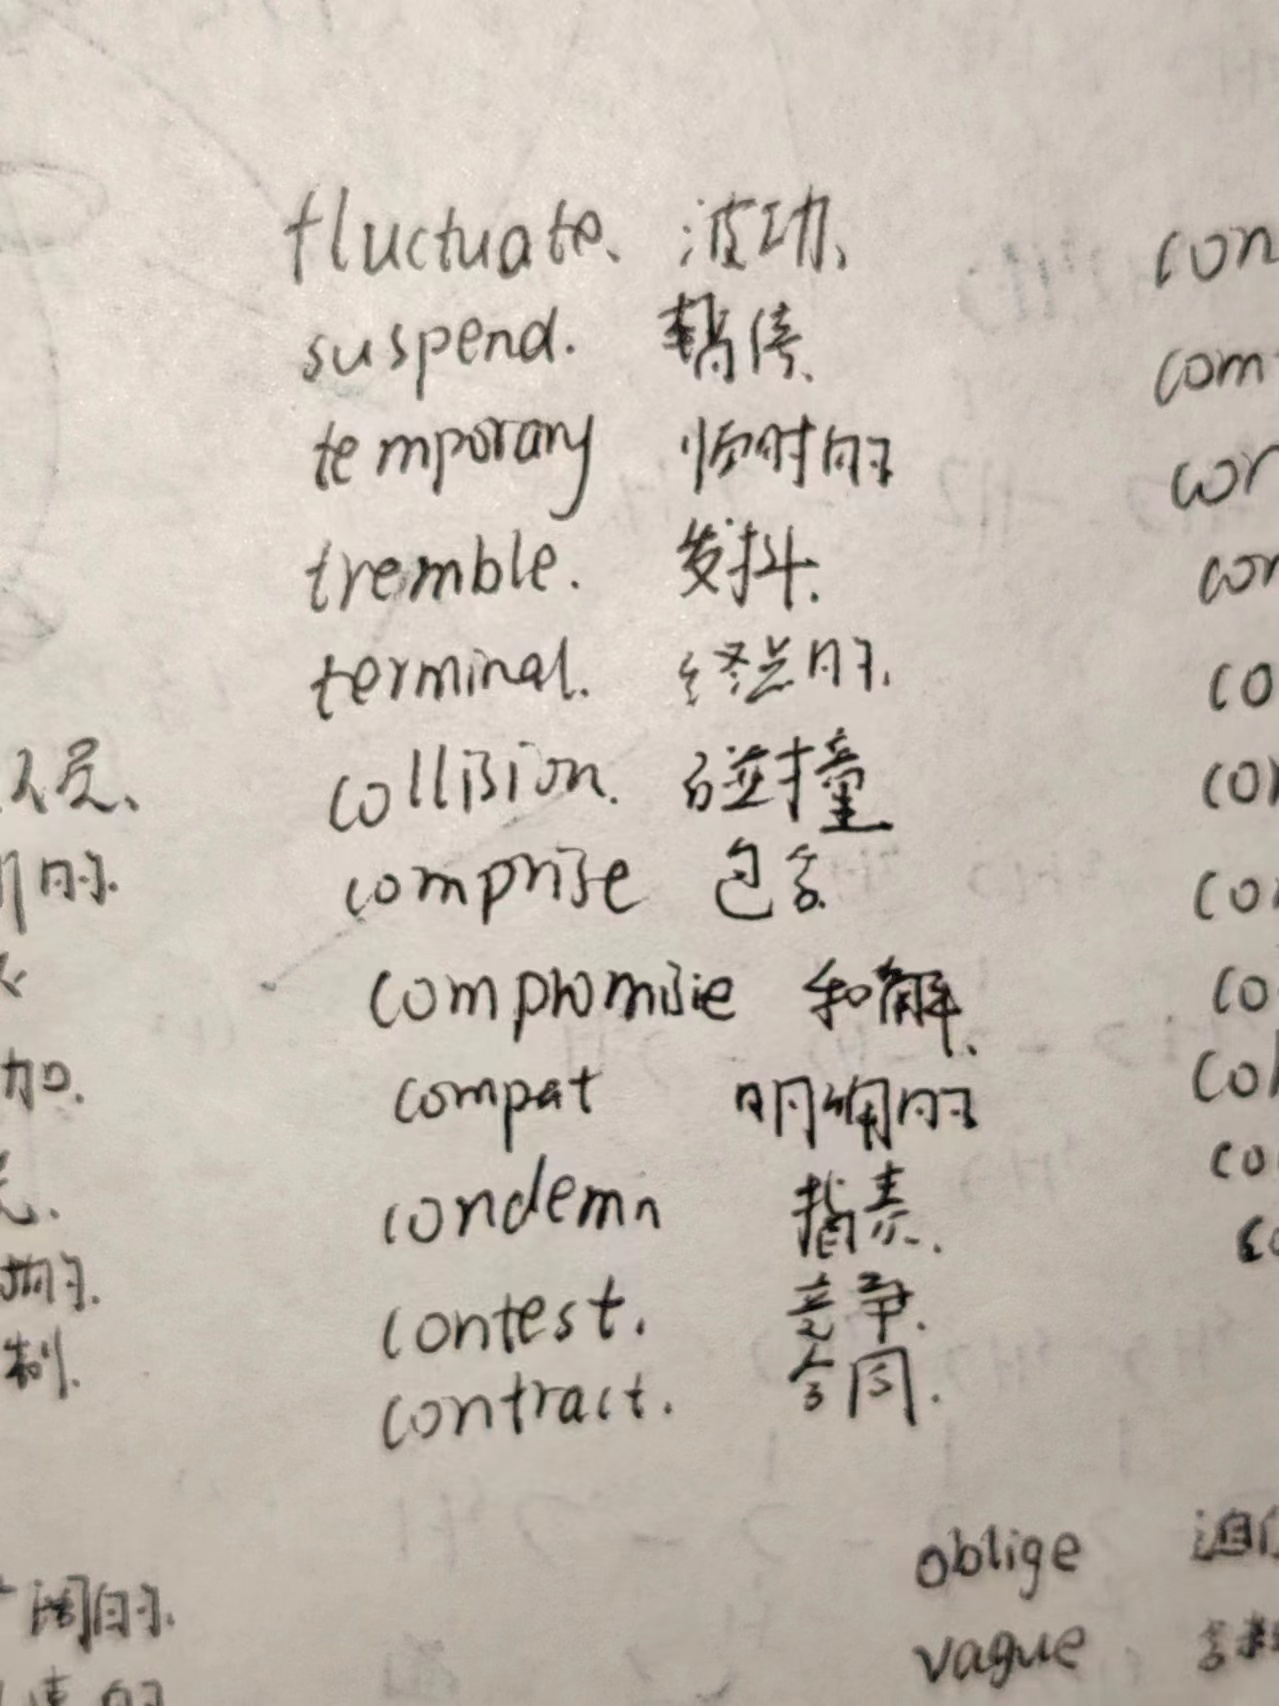 fluctuate、 波动、
suspend. 暂停、
temporary 临时的
tremble. 发抖.
terminal. 终点的.
collision. 碰撞
comprise 包含.
compromisie 和解、
compat 明确的
condemn 指责.
contest. 竞争.
contract. 合同.
oblige 迫
vague
con
com
con
con
co
con
con
co
col
co
co
的.
加.
制.
阔的.
的